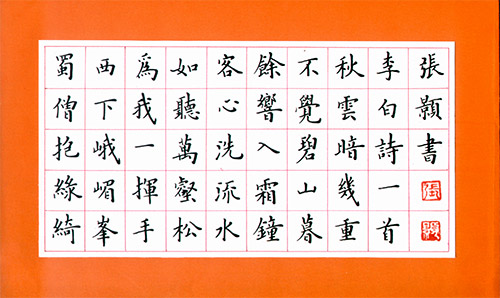 蜀僧抱綠綺
西下峨嵋峯
爲我一揮手
如聽萬壑松
客心洗流水
餘響入霜鐘
不覺碧山暮
秋雲暗幾重
李白詩一首
張顥書
張